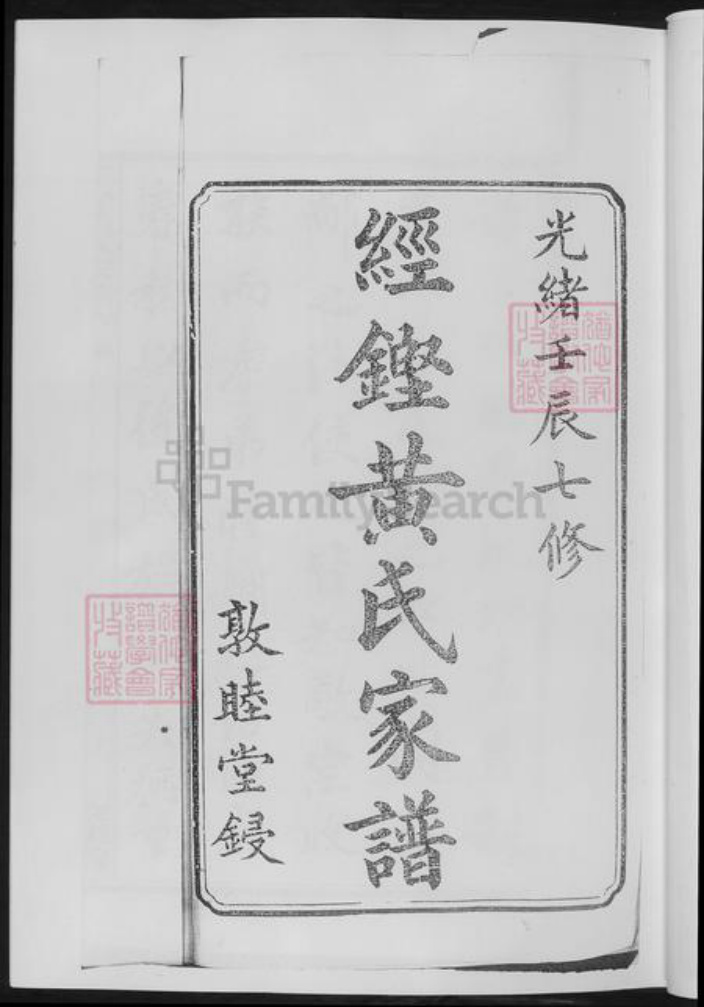 光緒壬辰七修
經鏗黄氏家譜
敦睦堂鋟
FamilySearch